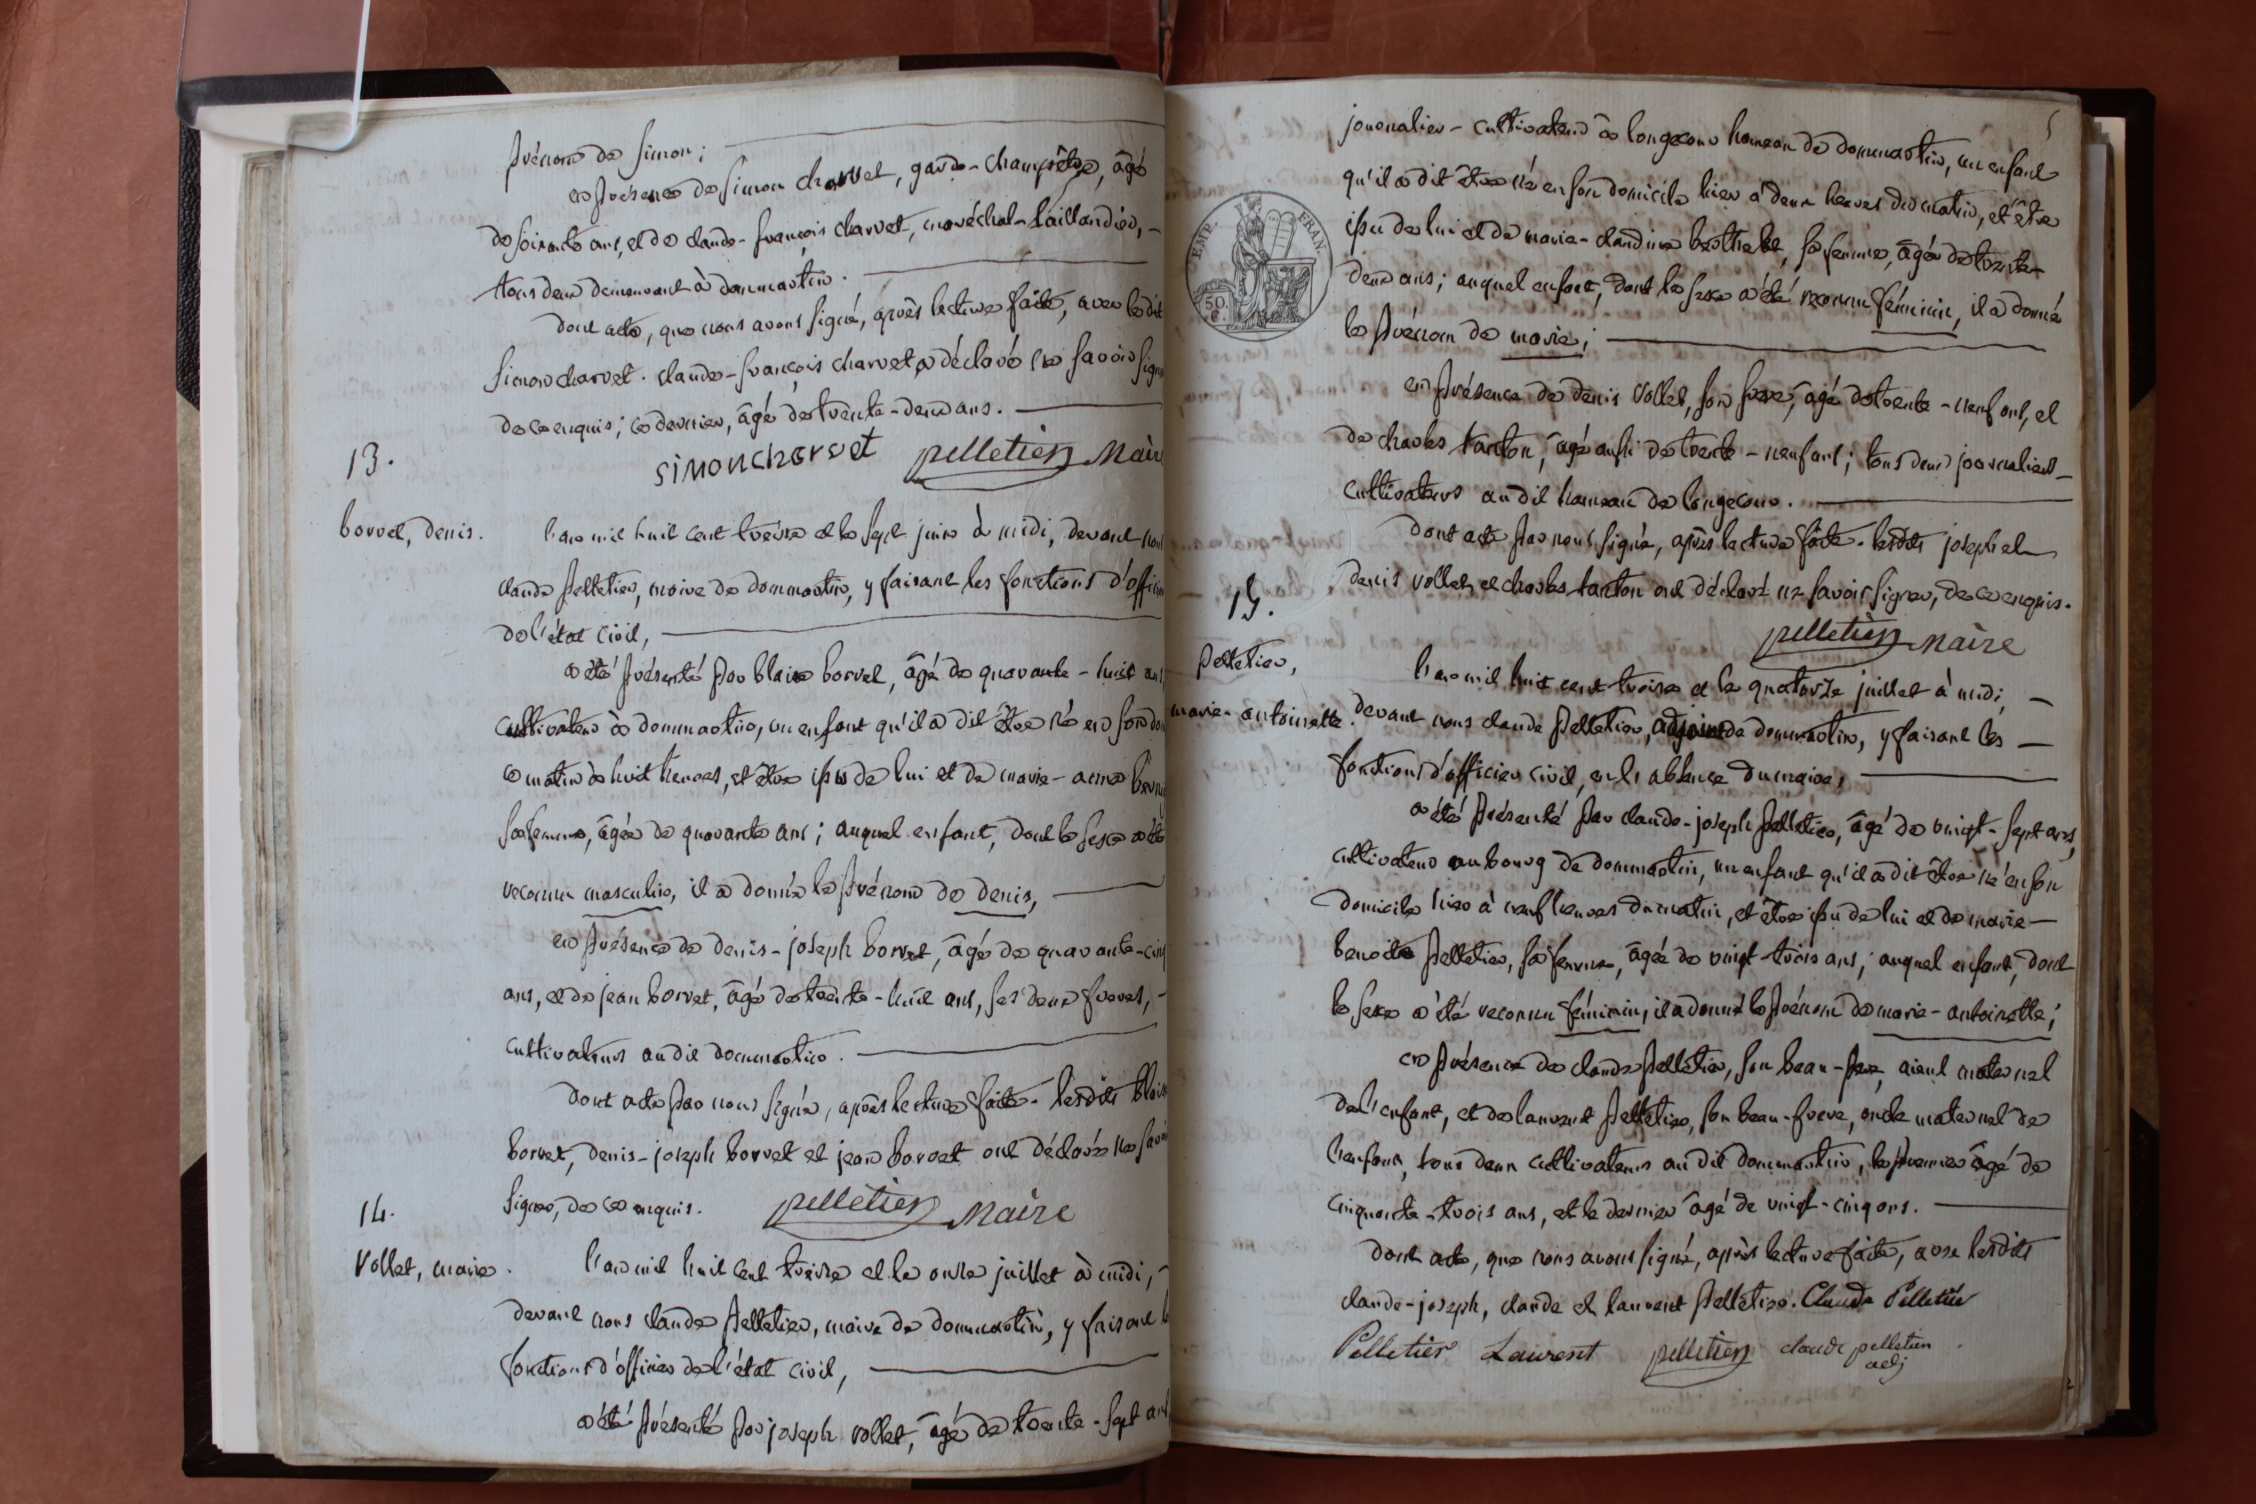 prénom de simon;
en présence de simon charvet, garde-champêtre, âgé
de soixante ans, et de claude-françois charvet, maréchal-taillandier,
tous deux demeurant à dommartin.
dont acte, que nous avons signé, après lecture faite, avec ledit
simon charvet. claude-françois charvet a déclaré ne savoir signer
de ce enquis; ce dernier, âgé de trente-deux ans.
simoncharvet pelletier Maire
13.
borvet, denis.
l'an mil huit cent treize et le sept juin à midi, devant nous
claude pelletier, maire de dommartin, y faisant les fonctions d'officier
de l'état civil,
a été présenté par blaise borvet, âgé de quarante-huit ans,
cultivateur à dommartin, un enfant qu'il a dit être né en son dom
ce matin à huit heures, et être issu de lui et de marie-anne
sa femme, âgée de quarante ans; auquel enfant, dont le sexe a été
reconnu masculin, il a donné le prénom de denis,
en présence de denis-joseph borvet, âgé de quarante-cinq
ans, et de jean borvet, âgé de trente-huit ans, ses deux freres,
cultivateurs au dit dommartin.
dont acte par nous signé, après lecture faite. lesdits blaise
borvet, denis-joseph borvet et jean borvet ont déclaré ne savoir
signer, de ce enquis. pelletier Maire
14.
Vollet, marie.
l'an mil huit cent treize et le onze juillet à midi,
devant nous claude pelletier, maire de dommartin, y faisant les
fonctions d'officier de l'état civil,
a été présenté par joseph vollet, âgé de trente-sept ans
5
journalier-cultivateur à longecour hameau de dommartin, un enfant
qu'il a dit être né en son domicile hier à deux heures du matin, et être
issu de lui et de marie-claudine, sa femme, âgée de trente-
deux ans; auquel enfant, dont le sexe a été reconnu féminin, il a donné
le prénom de marie;
EMP. FRAN.
50 c.
en présence de denis Vollet, son frere, âgé de trente-neuf ans, et
de charles tanton, âgé aussi de trente-neuf ans; tous deux journaliers-
cultivateurs au dit hameau de longecour.
dont acte par nous signé, après lecture faite. lesdits joseph et
denis vollet, et charles tanton ont déclaré ne savoir signer, de ce enquis.
pelletier Maire
15.
pelletier,
marie-antoinette.
l'an mil huit cent treize et le quatorze juillet à midi,
devant nous claude pelletier, adjoint de dommartin, y faisant les
fonctions d'officier civil, en l'absence du maire,
a été présenté par claude-joseph pelletier, âgé de vingt-sept ans,
cultivateur au bourg de dommartin, un enfant qu'il a dit être né en son
domicile hier à neuf heures du matin, et être issu de lui et de marie-
benoite pelletier, sa femme, âgée de vingt-trois ans; auquel enfant, dont
le sexe a été reconnu féminin, il a donné le prénom de marie-antoinette;
en présence de claude pelletier, son beau-pere, aieul maternel
de l'enfant, et de laurent pelletier, son beau-frere, oncle maternel de
l'enfant, tous deux cultivateurs au dit dommartin, le premier âgé de
cinquante-trois ans, et le dernier âgé de vingt-cinq ans.
dont acte, que nous avons signé, après lecture faite, avec lesdits
claude-joseph, claude et laurent pelletier. Claude Pelletier
Pelletier Laurent pelletier claude pelletier
adj